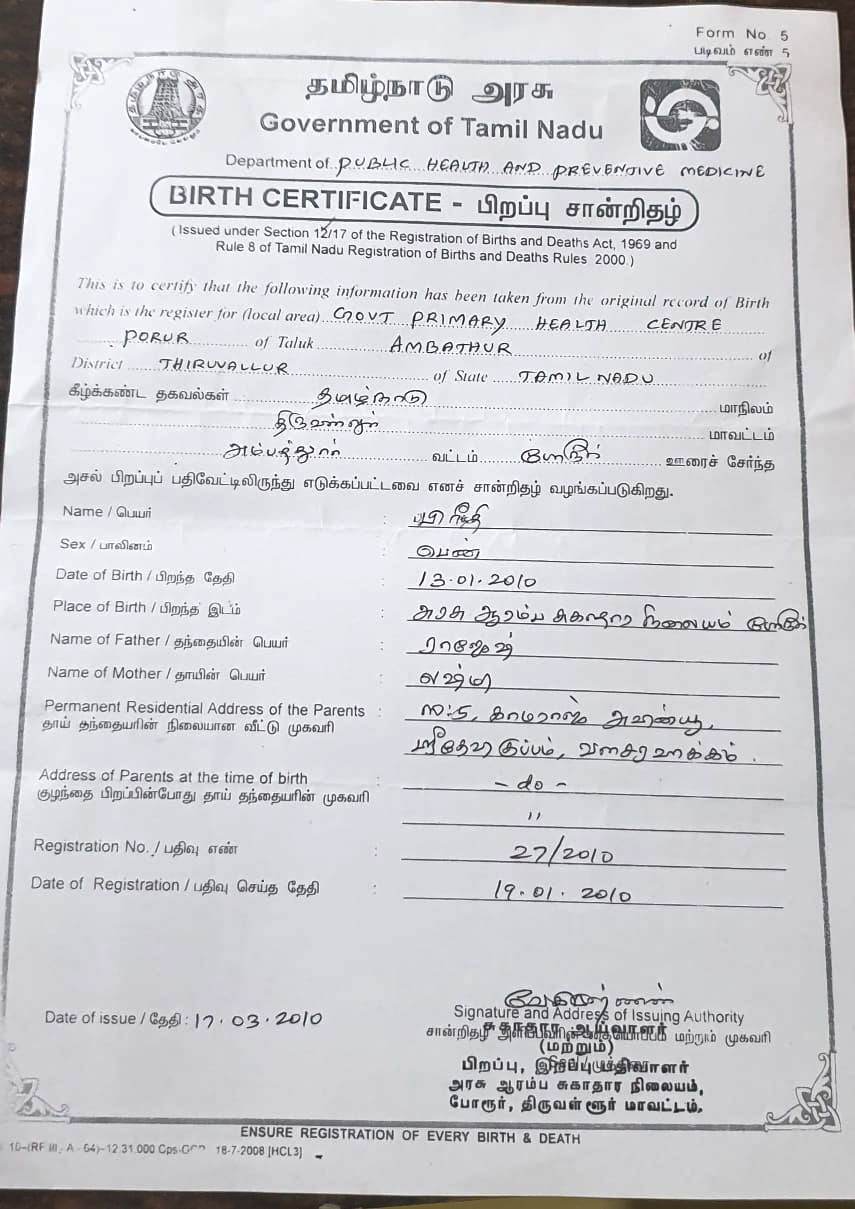 Form No 5
படிவம் எண் 5
தமிழ்நாடு அரசு
Government of Tamil Nadu
Department of PUBLIC HEALTH AND PREVENTIVE MEDICINE
BIRTH CERTIFICATE - பிறப்பு சான்றிதழ்
( Issued under Section 12/17 of the Registration of Births and Deaths Act, 1969 and
Rule 8 of Tamil Nadu Registration of Births and Deaths Rules 2000.)
This is to certify that the following information has been taken from the original record of Birth
which is the register for (local area) GOVT PRIMARY HEALTH CENTRE
PORUR of Taluk AMBATHUR of
District THIRUVALLUR of State TAMIL NADU
கீழ்க்கண்ட தகவல்கள் தமிழ்நாடு மாநிலம்
திருவள்ளூர் மாவட்டம்
அம்பத்தூர் வட்டம் போரூர் ஊரைச் சேர்ந்த
அசல் பிறப்புப் பதிவேட்டிலிருந்து எடுக்கப்பட்டவை எனச் சான்றிதழ் வழங்கப்படுகிறது.
Name / பெயர் :
Sex / பாலினம் : பெண்
Date of Birth / பிறந்த தேதி : 13.01.2010
Place of Birth / பிறந்த இடம் : அரசு ஆரம்ப சுகாதார நிலையம் போரூர்
Name of Father / தந்தையின் பெயர் : ராஜேஷ்
Name of Mother / தாயின் பெயர் :
Permanent Residential Address of the Parents : காமராஜ் அவென்யூ,
தாய் தந்தையரின் நிலையான வீட்டு முகவரி ஸ்ரீதேவி குப்பம், வளசரவாக்கம்.
Address of Parents at the time of birth : - do -
குழந்தை பிறப்பின்போது தாய் தந்தையரின் முகவரி "
Registration No. / பதிவு எண் : 27/2010
Date of Registration / பதிவு செய்த தேதி : 19.01.2010
Date of issue / தேதி : 17.03.2010
Signature and Address of Issuing Authority
சான்றிதழ் மற்றும் முகவரி
சுகாதார ஆய்வாளர்
(மற்றும்)
பிறப்பு, இறப்பு பதிவாளர்
அரசு ஆரம்ப சுகாதார நிலையம்,
போரூர், திருவள்ளூர் மாவட்டம்.
ENSURE REGISTRATION OF EVERY BIRTH & DEATH
18-7-2008 [HCL3]